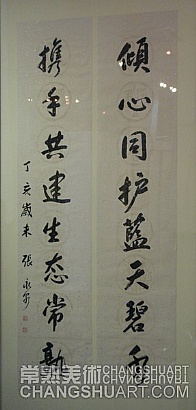 傾心同护藍天碧水
携手共建生态常熟
丁亥歲末 張永
常熟美術 CHANGSHUART